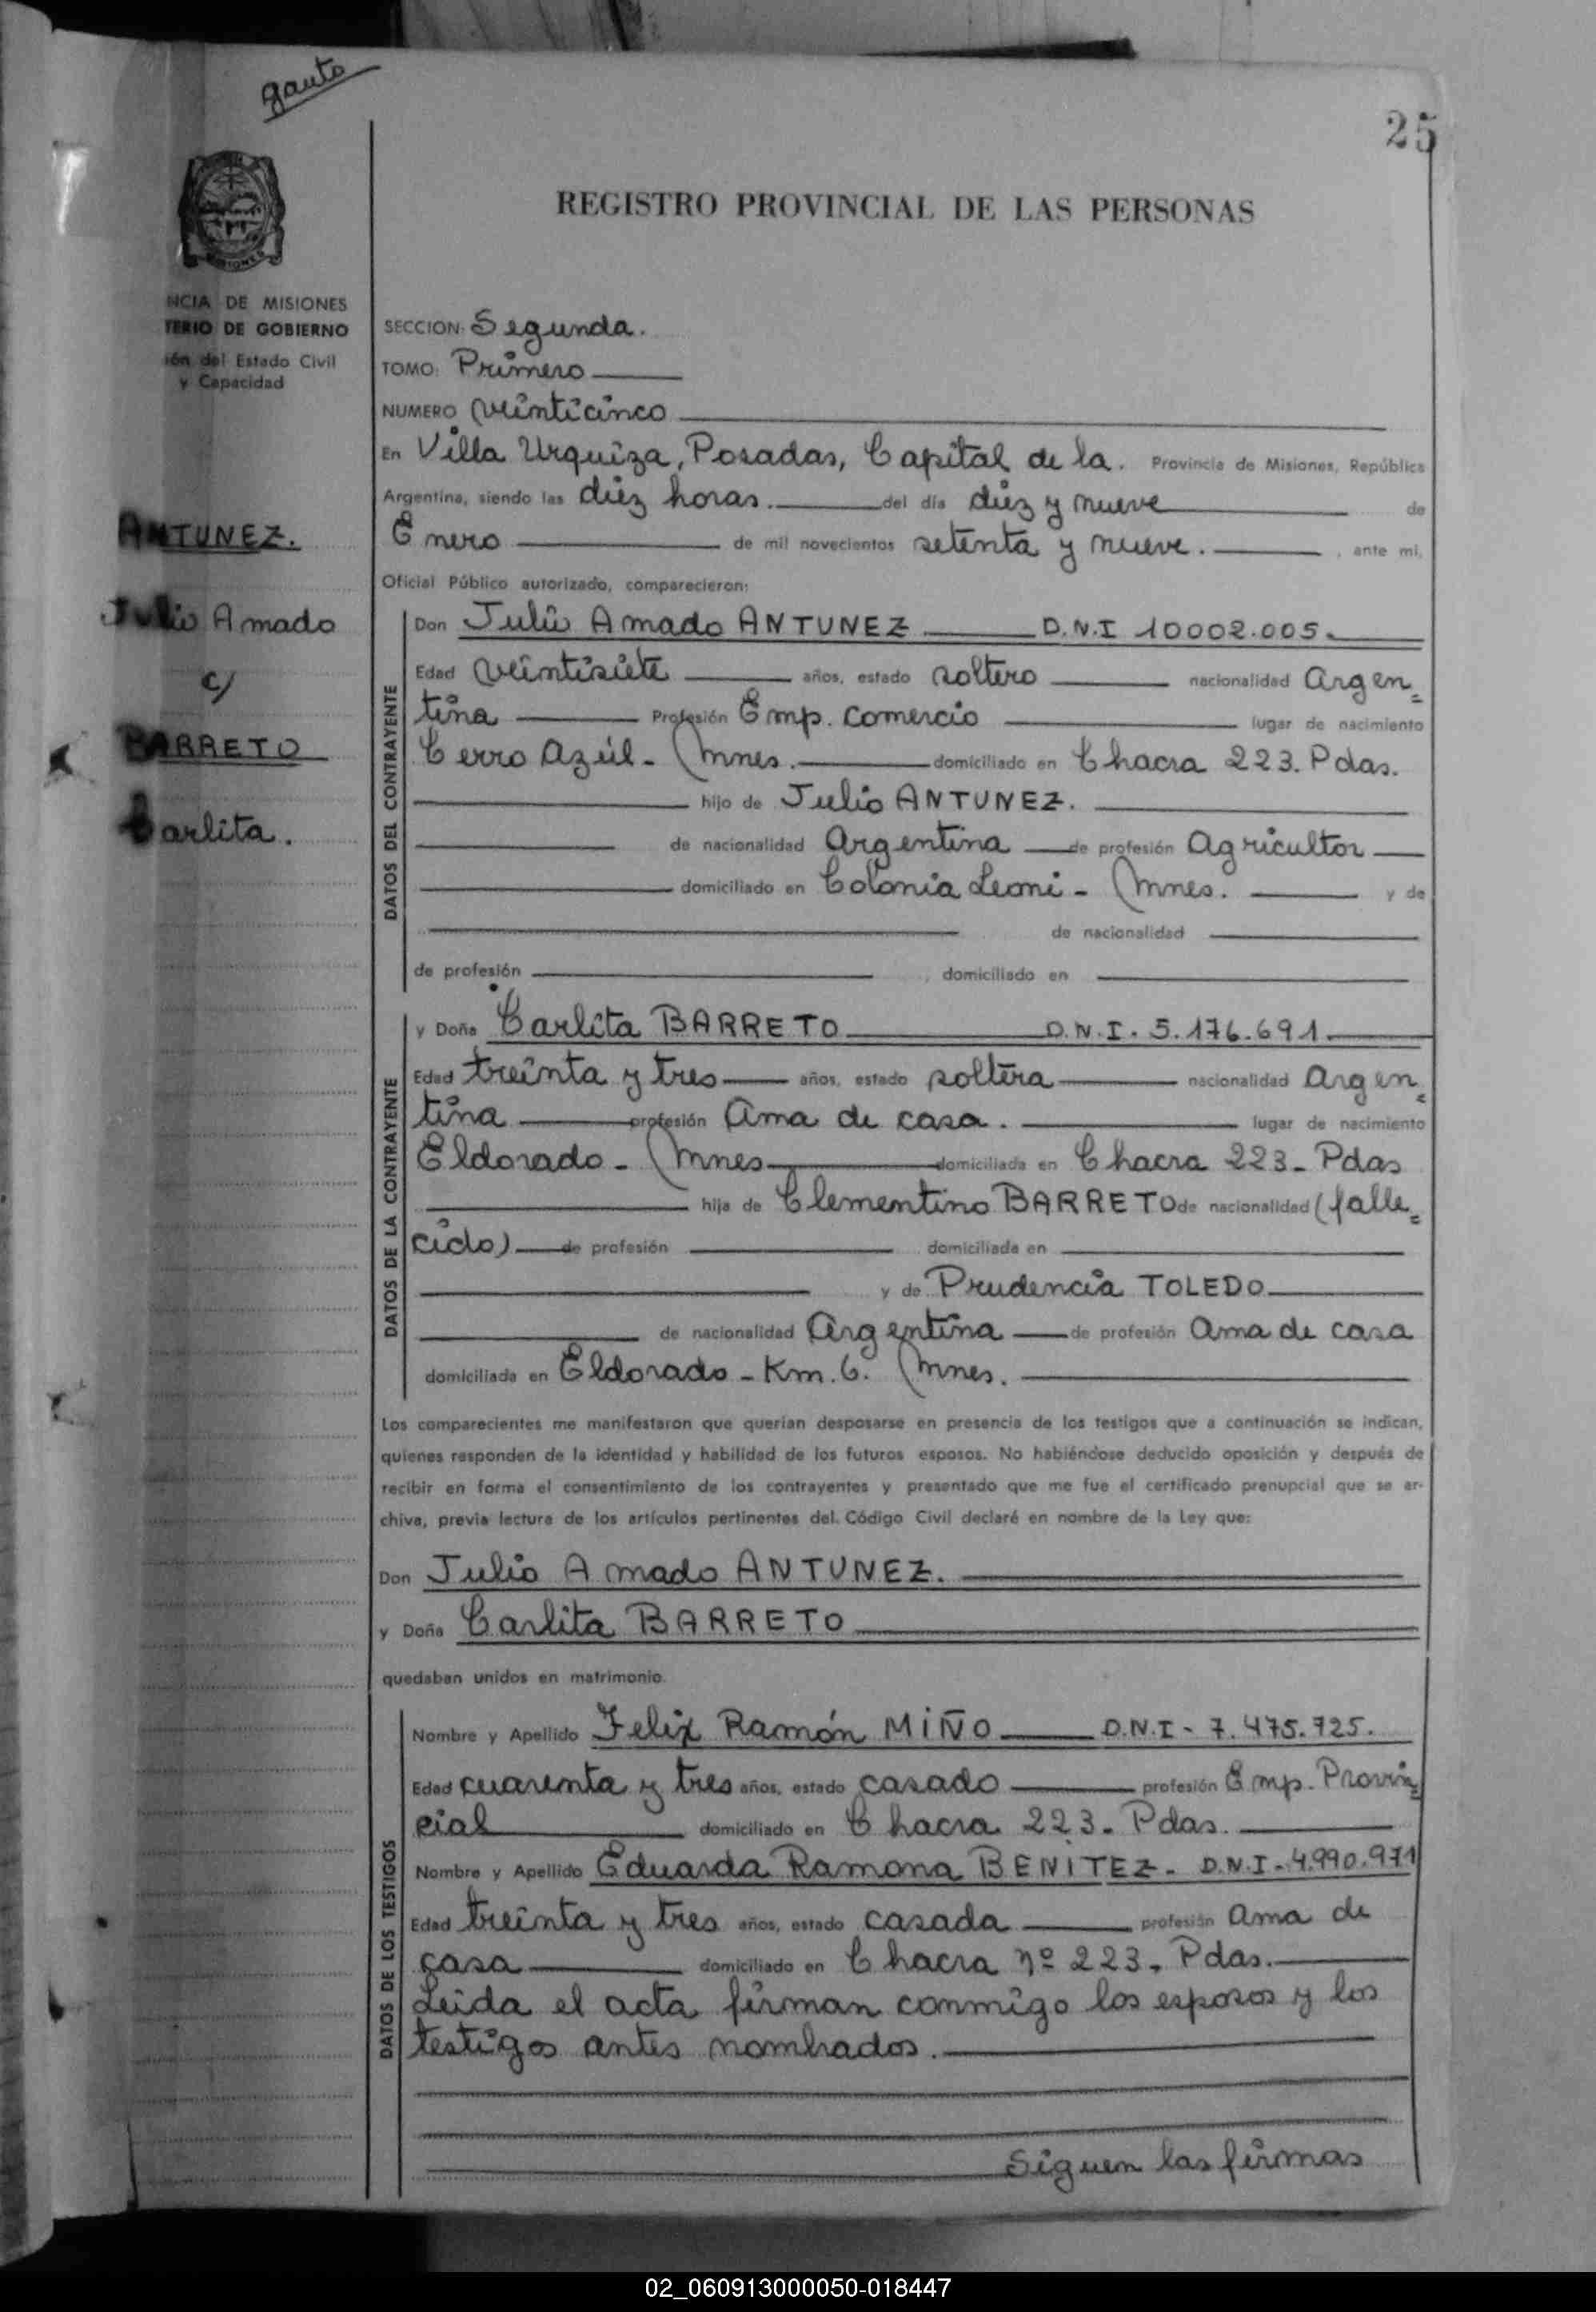 gauto
25
REGISTRO PROVINCIAL DE LAS PERSONAS
NCIA DE MISIONES
TERIO DE GOBIERNO
ión del Estado Civil
y Capacidad
SECCION: Segunda.
TOMO: Primero
NUMERO veinticinco
En Villa Urquiza, Posadas, Capital de la. Provincia de Misiones, República
Argentina, siendo las diéz horas. del día diéz y nueve de
Enero de mil novecientos setenta y nueve. , ante mi,
Oficial Público autorizado, comparecieron:
ANTUNEZ.
Julio Amado
c/
BARRETO
Carlita.
DATOS DEL CONTRAYENTE
Don Julio Amado ANTUNEZ D.N.I 10002.005.
Edad veintisiete años, estado soltero nacionalidad Argen=
tina Profesión Emp. Comercio lugar de nacimiento
Cerro Azúl - Mnes. domiciliado en Chacra 223. Pdas.
hijo de Julio ANTUNEZ.
de nacionalidad Argentina de profesión Agricultor
domiciliado en Colonia Leoni - Mnes. y de
de nacionalidad
de profesión , domiciliado en
DATOS DE LA CONTRAYENTE
y Doña Carlita BARRETO D.N.I. 5.176.691.
Edad treinta y tres años, estado soltera nacionalidad Argen=
tina profesión Ama de casa. lugar de nacimiento
Eldorado - Mnes domiciliada en Chacra 223- Pdas
hija de Clementino BARRETO de nacionalidad (falle=
cido) de profesión domiciliada en
y de Prudencia TOLEDO
de nacionalidad Argentina de profesión Ama de casa
domiciliada en Eldorado - Km. 6. Mnes.
Los comparecientes me manifestaron que querían desposarse en presencia de los testigos que a continuación se indican,
quienes responden de la identidad y habilidad de los futuros esposos. No habiéndose deducido oposición y después de
recibir en forma el consentimiento de los contrayentes y presentado que me fue el certificado prenupcial que se ar-
chiva, previa lectura de los artículos pertinentes del Código Civil declaré en nombre de la Ley que:
Don Julio Amado ANTUNEZ.
y Doña Carlita BARRETO
quedaban unidos en matrimonio.
DATOS DE LOS TESTIGOS
Nombre y Apellido Felix Ramón MIÑO D.N.I - 7.475.725.
Edad cuarenta y tres años, estado casado profesión Emp. Provin=
cial domiciliado en Chacra 223. Pdas.
Nombre y Apellido Eduarda Ramona BENITEZ. D.N.I - 4.990.971
Edad treinta y tres años, estado casada profesión Ama de
casa domiciliado en Chacra nº 223. Pdas.
Leida el acta firman conmigo los esposos y los
testigos antes nombrados.
Siguen las firmas
02_060913000050-018447